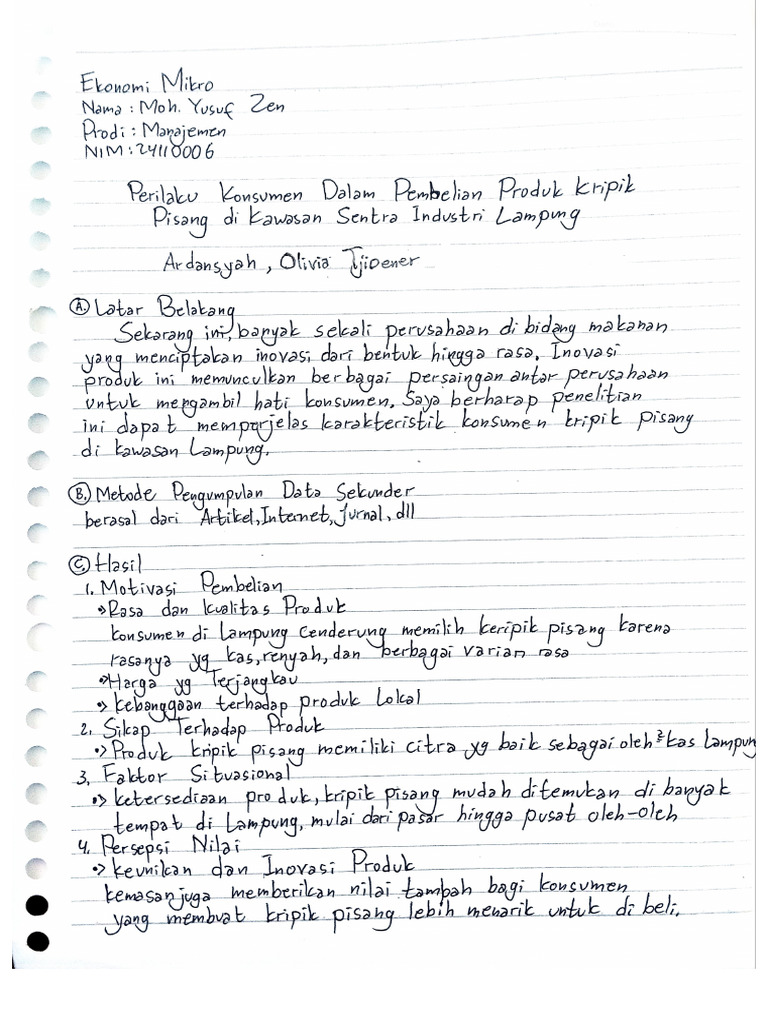 Ekonomi Mikro
Nama : Moh. Yusuf Zen
Prodi : Manajemen
NIM : 24110006
Perilaku Konsumen Dalam Pembelian Produk Kripik
Pisang di Kawasan Sentra Industri Lampung
Ardansyah, Olivia Tjioener
A. Latar Belakang
Sekarang ini, banyak sekali perusahaan di bidang makanan
yang menciptakan inovasi dari bentuk hingga rasa. Inovasi
produk ini memunculkan berbagai persaingan antar perusahaan
untuk mengambil hati konsumen. Saya berharap penelitian
ini dapat memperjelas karakteristik konsumen kripik pisang
di kawasan Lampung.
B. Metode Pengumpulan Data Sekunder
berasal dari Artikel, Internet, Jurnal, dll
C. Hasil
1. Motivasi Pembelian
•> Rasa dan Kualitas Produk
Konsumen di Lampung Cenderung memilih keripik pisang karena
rasanya yg kas, renyah, dan berbagai varian rasa
•> Harga yg Terjangkau
•> Kebanggaan terhadap produk Lokal
2. Sikap Terhadap Produk
•> Produk kripik pisang memiliki citra yg baik sebagai oleh² kas Lampung
3. Faktor Situasional
•> Ketersediaan produk, kripik pisang mudah ditemukan di banyak
tempat di Lampung, mulai dari pasar hingga pusat oleh-oleh
4. Persepsi Nilai
•> Keunikan dan Inovasi Produk
Kemasan juga memberikan nilai tambah bagi konsumen
yang membuat kripik pisang lebih menarik untuk di beli.